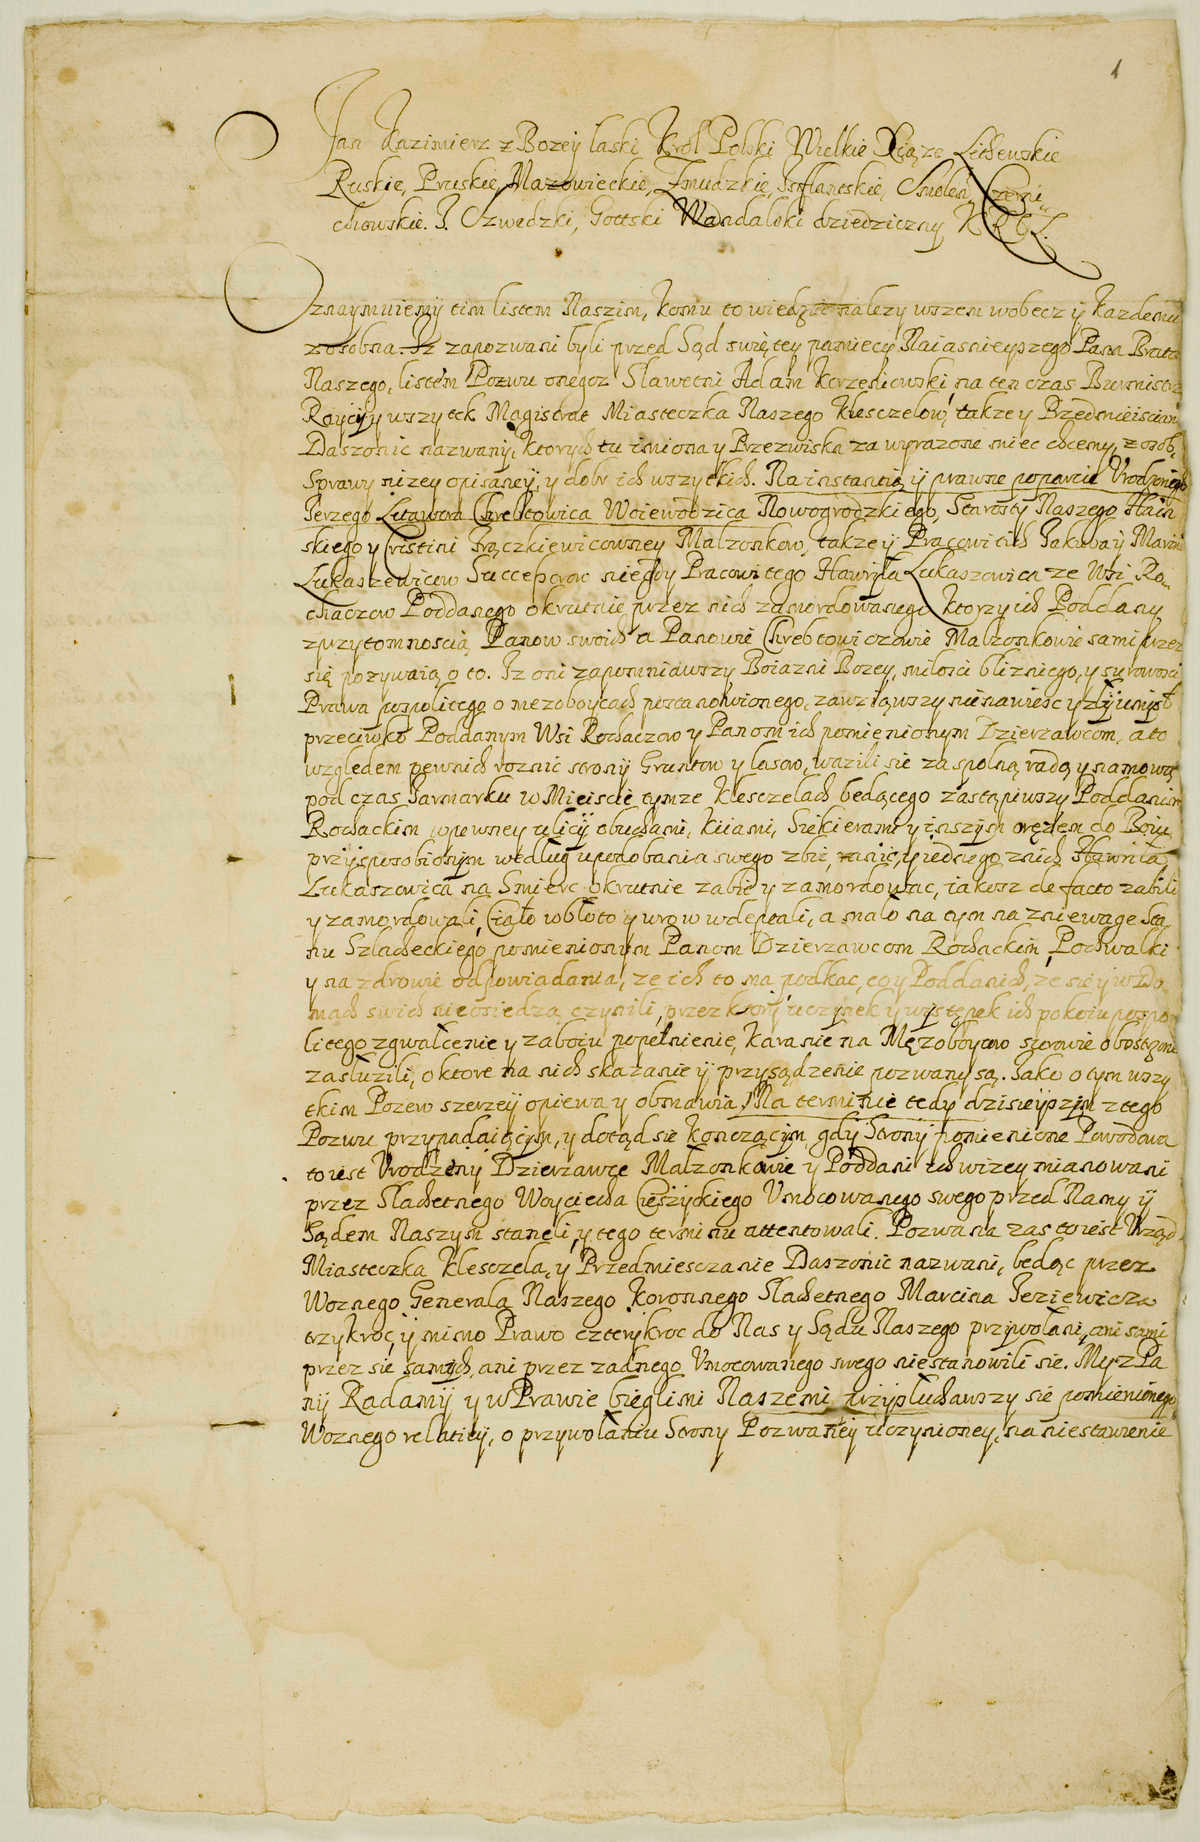 1
Jan Kazimierz z Bozey laski Krol Polski Wielkie Xiąze Lithewskie
Ruskie, Pruskie, Mazowieckie, Zmudzkie, Inflantskie, Smolen: Czerni
chowskie. J. Szwedzki, Gottski Wandalski dziedziczny K R E L.
Oznaymuiemy tim listem Naszim, Komu to wiedziec nalezy wszem wobecz y Kazdemu
zosobna. Iz zapozwani byli przed Sąd swiętey pamięcy Naiasnieyszego Pana Brata
Naszego, listem Pozwu onegoz Slawetni Adam Korzeniowski, na ten czas Burmistrz
Raycy y wszytek Magistrat Miasteczka Naszego Klesczelow, takze y Przedmiesciani
Daszonic nazwani, ktorych tu imiona y Przezwiska za wyrazone miec chcemy, z osob,
Sprawy nizey opisaney, y dobr ich wszytkich. Na instantią y prawne poparcie Vrodzonego
Jerzego Litawora Chrebtowica Woiewodzica Nowogrodzkiego, Starosty Naszego Hain
skiego y Cristini Frąckiewicowney Malzonkow, takze y Pracowitich Jakuba y Marini
Lukaszewicow Successorow niegdy Pracowitego Hawryla Lukaszowica ze Wsi Ro
chaczow Poddanego okrutnie przez nich zamordowanego ktorzy ich Poddany
z przytomnoscią Panow swoich a Panowie Chrebtowiczowie Malzonkowie sami przez
się pozywaią o to. Iz oni zapomniawszy Boiazni Bozey, milosci blizniego, y surowosci
Prawa pospolitego o mezoboycach postanowionego, zawziąwszy nienawisc y zly umysł
przeciwko Poddanym Wsi Rochaczow y Panom ich pomienionym Dzierzawcom, a to
względem pewnich roznic strony Gruntow y lasow, wazili sie za spolną radą y namową
pod czas Jarmarku w Miescie tymze Klesczelach bedącego zastąpiwszy Poddanim
Rochackim w pewney ulicy obuchami, kiiami, Siekierami y inszym oręzem do Boiu
przysposobionym według upodobania swego zbic, ranic, y iednego z nich Hawrila
Lukaszowica na Smierc okrutnie zabic y zamordowac, iakosz de facto zabili
y zamordowali, Ciało w błoto y w row wdeptali, a mało na tym na zniewage Sta
nu Szlacheckiego pomienionym Panom Dzierzawcom Rochackim, Pochwalki
y na zdrowie odpowiadania, ze ich to ma podkac, co y Poddanich, ze sie y w Do
mach swich nieosiedzą czynili, przez ktory uczynek y występek ich pokoiu pospo
litego zgwalcenie y zaboiu popełnienie, karanie na Męzoboycow surowie obostrzone
zasłuzili, o ktore na nich skazanie y przysądzenie pozwany są. Jako o tym wszy
tkim Pozew szerzey opiewa y obmawia. Na terminie tedy dzisieyszym z tego
Pozwu przypadaiącym, y dotąd sie konczącym, gdy Strony pomienione Powodowa
to iest Vrodzeny Dzierzawce Malzonkowie y Poddani ich wizey mianowani
przez Slachetnego Woyciecha Cieszyckiego Vmocowanego swego przed Namy y
Sądem Naszym staneli, y tego terminu attentowali. Pozwana zas to iest Vrząd
Miasteczka Klesczela, y Przedmiesczanie Daszonic nazwani, bedąc przez
Woznego Generala Naszego Koronnego Slachetnego Marcina Jeziewicza
trzykroc, y mimo Prawo czterykroc do Nas y Sądu Naszego przywolani, ani sami
przez sie samych, ani przez zadnego Vmocowanego swego niestanowili sie. My z Pa
ny Radamy y w Prawie biegłimi Naszemi przysluchawszy sie pomienionego
Woznego relatiey, o przywolaniu Strony Pozwaney uczynioney, na niestawienie